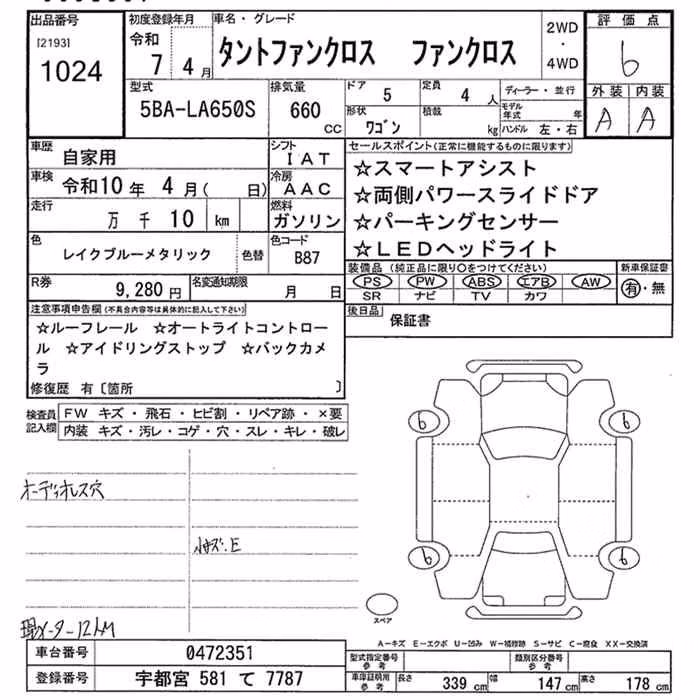 出品番号
[2193]
1024
初度登録年月
令和
7 4月
車名・グレード
タントファンクロス ファンクロス
2WD
・
4WD
評価点
6
外装 内装
A A
型式
5BA-LA650S
排気量
660
CC
ドア
5
定員
4 人
ディーラー・並行
モデル
年式 年
形状
ワゴン
積載
kg
ハンドル 左・右
車歴
自家用
シフト
IAT
車検
令和10年 4月( 日)
冷房
AAC
走行
万 千 10 km
燃料
ガソリン
色
レイクブルーメタリック
色替
色コード
B87
R券
9,280円
名変通知期限
月 日
セールスポイント(正常に機能するものに限ります)
☆スマートアシスト
☆両側パワースライドドア
☆パーキングセンサー
☆LEDヘッドライト
装備品 (純正品に限り○をつけてください)
PS PW ABS エアB AW
SR ナビ TV カワ
新車保証書
有・無
後日品
保証書
注意事項申告欄(不具合内容等は具体的に記入して下さい)
☆ルーフレール ☆オートライトコントロー
ル ☆アイドリングストップ ☆バックカメ
ラ
修復歴 有〔箇所 〕
検査員
記入欄
FW キズ・飛石・ヒビ割・リペア跡・×要
内装 キズ・汚レ・コゲ・穴・スレ・キレ・破レ
オーディオレス穴
小キズ.E
現メーター12kM
6
6
6
6
スペア
A-キズ E-エクボ U-凹み W-補修跡 S-サビ C-腐食 XX-交換済
車台番号
0472351
登録番号
宇都宮 581 て 7787
型式指定番号
参考
類別区分番号
参考
車庫証明用
参考
長さ
339 cm
幅
147 cm
高さ
178 cm